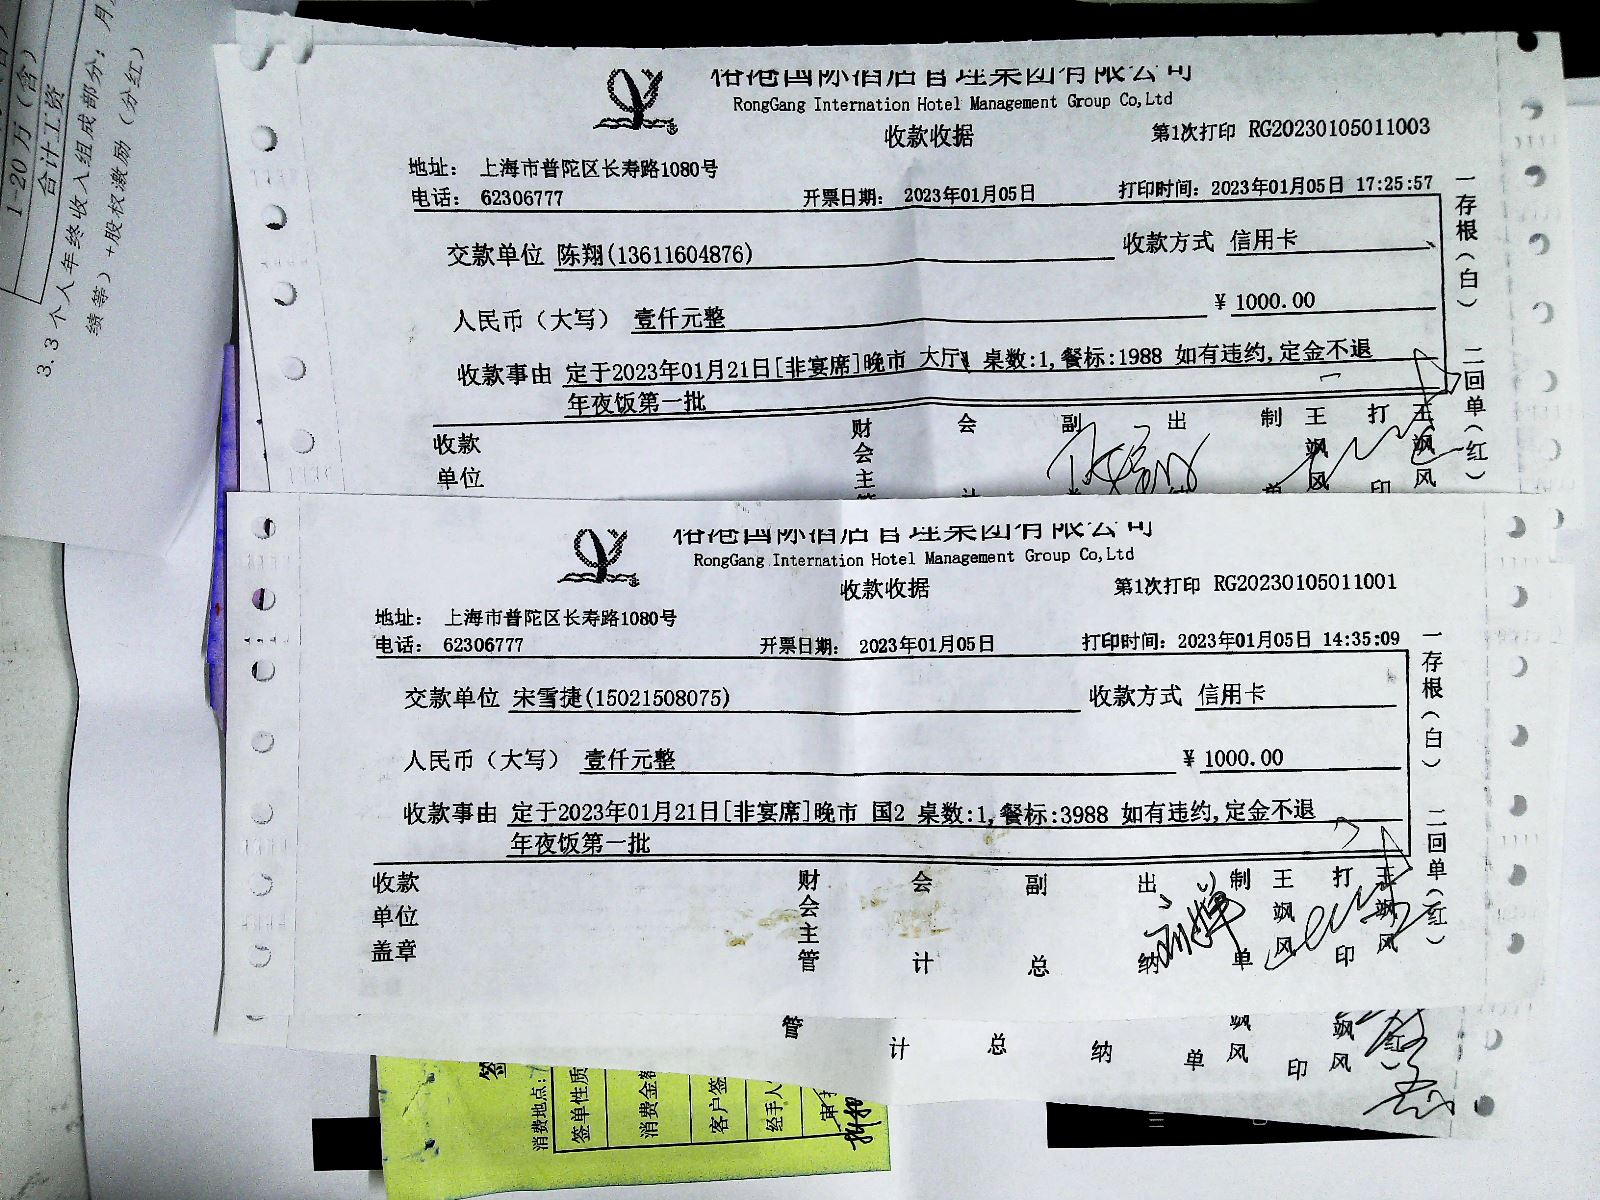 1-20 万（含）
合计工资
3.3 个人年终收入组成部分：月
绩等）+股权激励（分红）
裕港国际酒店管理集团有限公司
RongGang Internation Hotel Management Group Co,Ltd
收款收据
第1次打印 RG20230105011003
地址： 上海市普陀区长寿路1080号
电话： 62306777 开票日期： 2023年01月05日 打印时间：2023年01月05日 17:25:57
交款单位 陈翔(13611604876) 收款方式 信用卡
人民币（大写） 壹仟元整 ¥ 1000.00
收款事由 定于2023年01月21日[非宴席]晚市 大厅 桌数:1,餐标:1988 如有违约,定金不退
年夜饭第一批
一存根（白） 二回单（红）
收款单位 财会主管 会计 副总 出纳 制单 王飒风 打印 王飒风
裕港国际酒店管理集团有限公司
RongGang Internation Hotel Management Group Co,Ltd
收款收据
第1次打印 RG20230105011001
地址： 上海市普陀区长寿路1080号
电话： 62306777 开票日期： 2023年01月05日 打印时间：2023年01月05日 14:35:09
交款单位 宋雪捷(15021508075) 收款方式 信用卡
人民币（大写） 壹仟元整 ¥ 1000.00
收款事由 定于2023年01月21日[非宴席]晚市 国2 桌数:1,餐标:3988 如有违约,定金不退
年夜饭第一批
一存根（白） 二回单（红）
收款单位盖章 财会主管 会计 副总 出纳 制单 王飒风 打印 王飒风
管 计 总 纳 单 飒风 印 飒风 红）
消费地点：
签单性质
消费金额
客户签
经手人